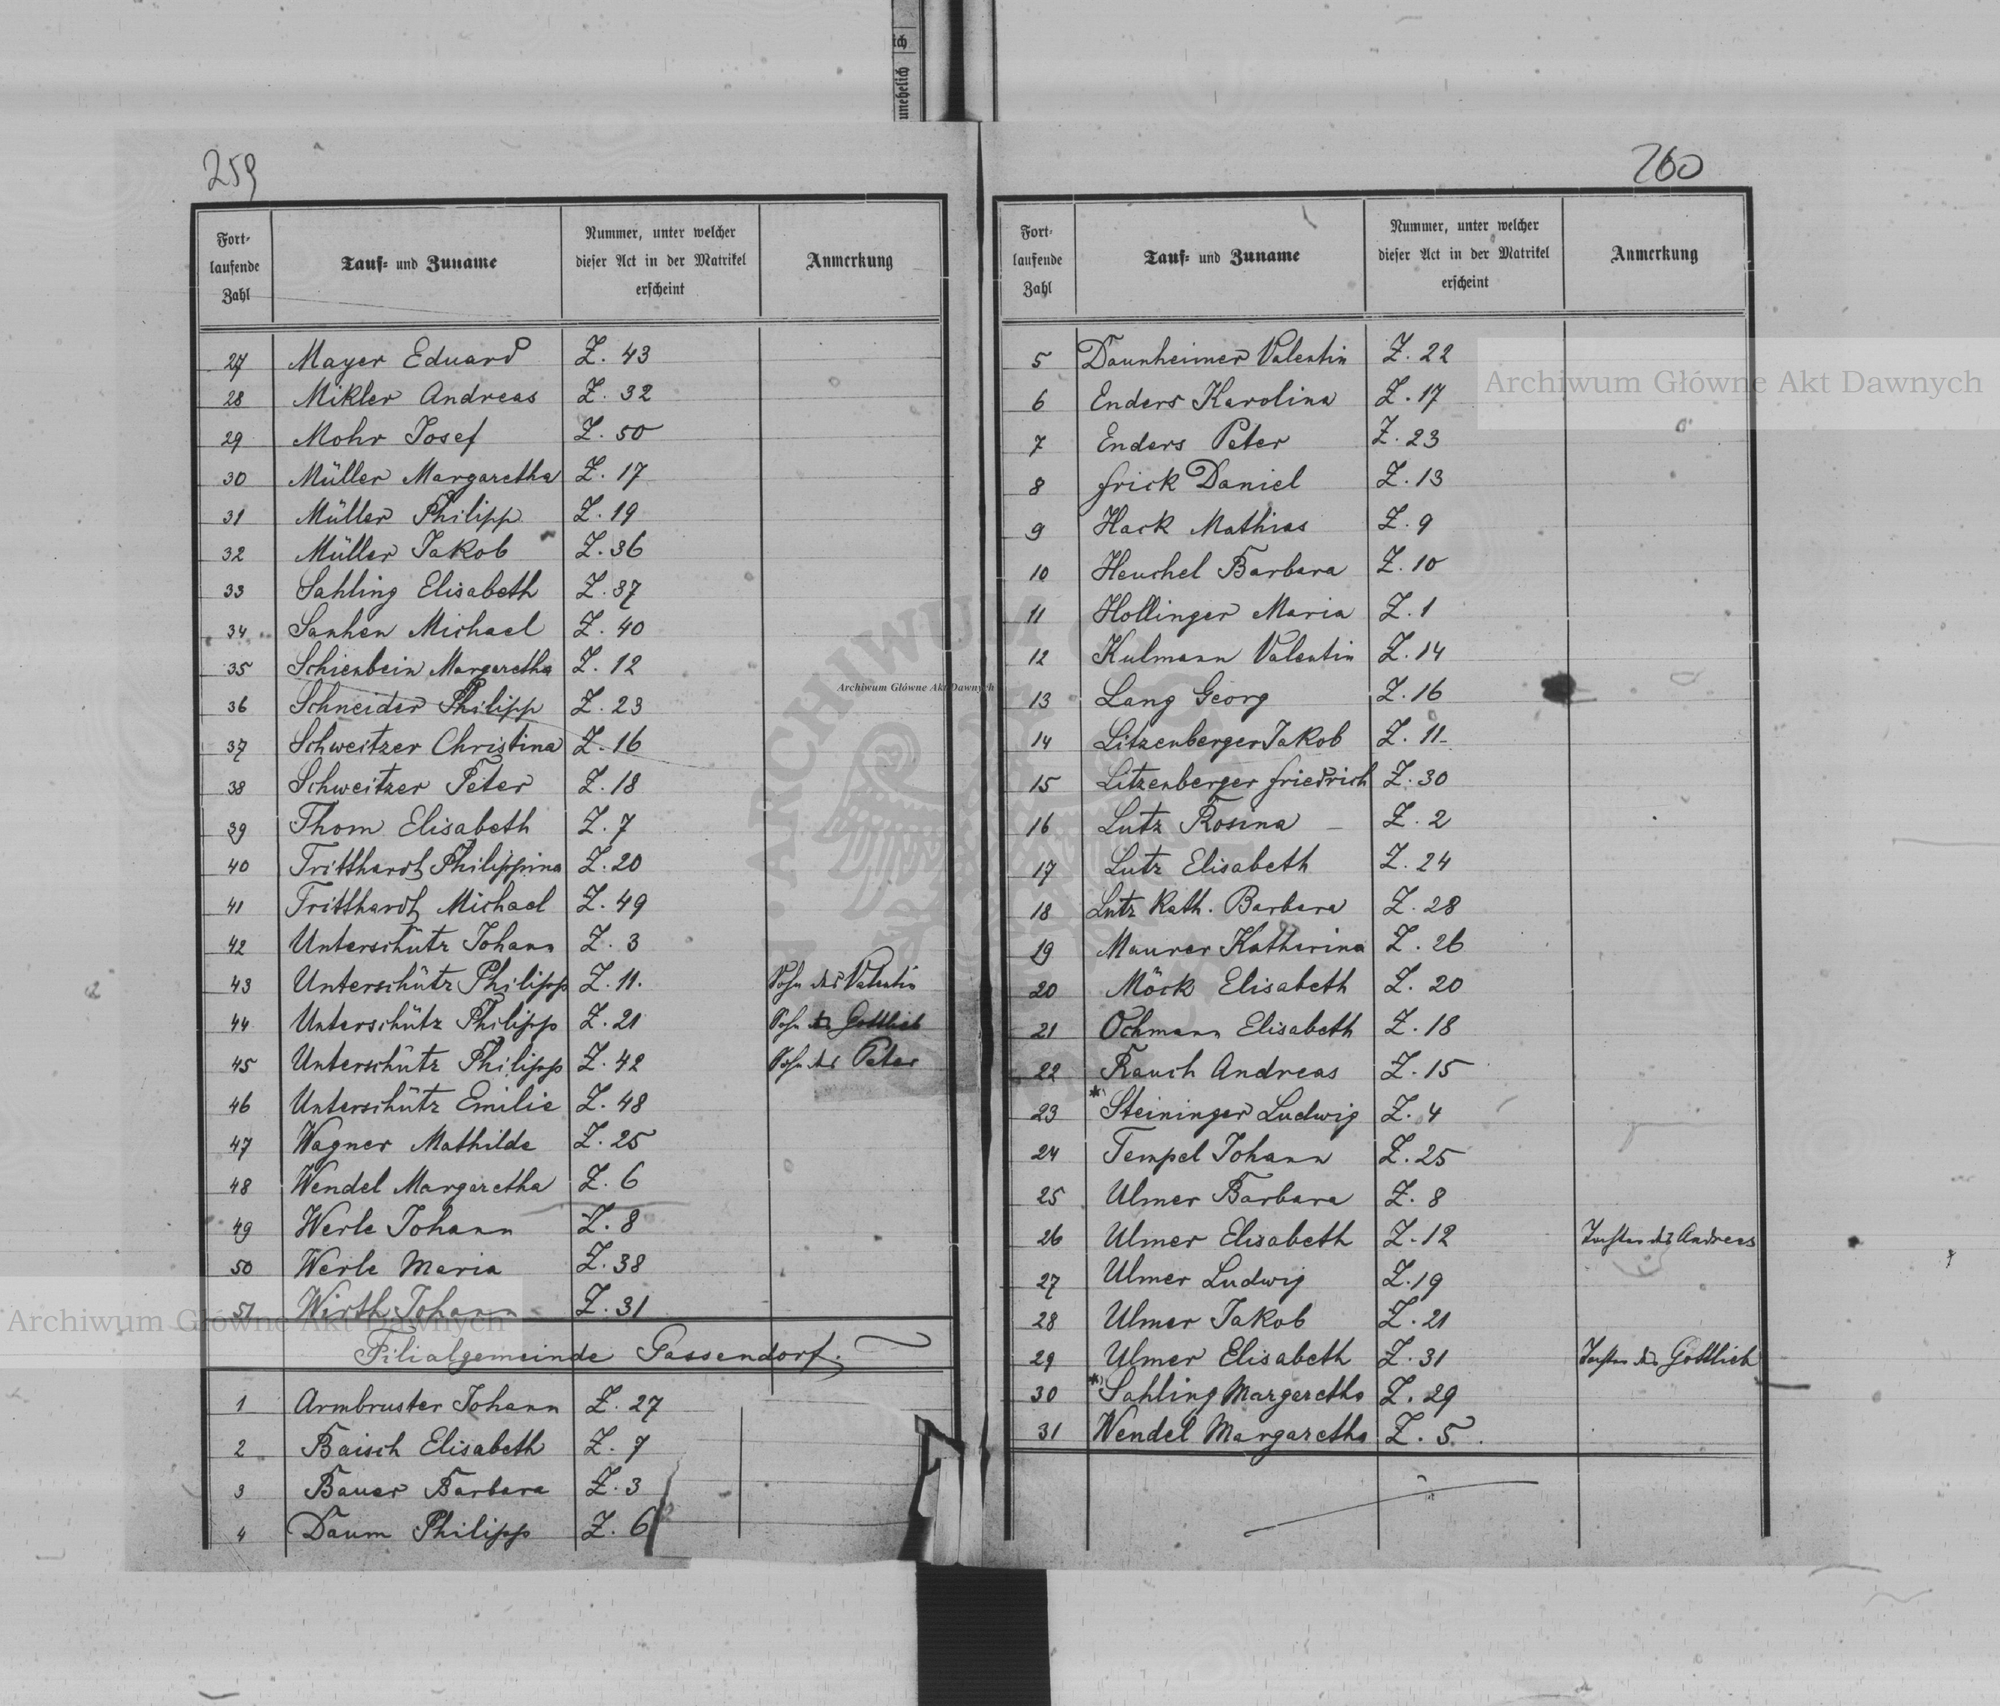 ich
unehelich
259
Fort-
laufende
Zahl
Tauf- und Zuname
Nummer, unter welcher
dieser Act in der Matrikel
erscheint
Anmerkung
27 Mayer Eduard Z. 43
28 Mikler Andreas Z. 32
29 Mohr Josef Z. 50
30 Müller Margaretha Z. 17
31 Müller Philipp Z. 19
32 Müller Jakob Z. 36
33 Sahling Elisabeth Z. 37
34 Sanhen Michael Z. 40
35 Schienbein Margaretha Z. 12
36 Schneider Philipp Z. 23
37 Schweitzer Christina Z. 16
38 Schweitzer Peter Z. 18
39 Thom Elisabeth Z. 7
40 Tritthardt Philippina Z. 20
41 Tritthardt Michael Z. 49
42 Unterschütz Johann Z. 3
43 Unterschütz Philipp Z. 11. Sohn des Valentin
44 Unterschütz Philipp Z. 21 Sohn des Gottlieb
45 Unterschütz Philipp Z. 42 Sohn des Peter
46 Unterschütz Emilie Z. 48
47 Wagner Mathilde Z. 25
48 Wendel Margaretha Z. 6
49 Werle Johann Z. 8
50 Werle Maria Z. 38
51 Wirth Johann Z. 31
Filialgemeinde Gassendorf.
1 Armbruster Johann Z. 27
2 Baisch Elisabeth Z. 7
3 Bauer Barbara Z. 3
4 Daum Philipp Z. 6
260
Fort-
laufende
Zahl
Tauf- und Zuname
Nummer, unter welcher
dieser Act in der Matrikel
erscheint
Anmerkung
5 Daunheimer Valentin Z. 22
6 Enders Karolina Z. 17
7 Enders Peter Z. 23
8 Frick Daniel Z. 13
9 Hack Mathias Z. 9
10 Heuchel Barbara Z. 10
11 Hollinger Maria Z. 1
12 Kulmann Valentin Z. 14
13 Lang Georg Z. 16
14 Litzenberger Jakob Z. 11
15 Litzenberger Friedrich Z. 30
16 Lutz Rosina Z. 2
17 Lutz Elisabeth Z. 24
18 Lutz Kath. Barbara Z. 28
19 Maurer Katharina Z. 26
20 Möck Elisabeth Z. 20
21 Ochmann Elisabeth Z. 18
22 Rauch Andreas Z. 15
23 * Steininger Ludwig Z. 4
24 Tempel Johann Z. 25
25 Ulmer Barbara Z. 8
26 Ulmer Elisabeth Z. 12 Tochter des Andreas
27 Ulmer Ludwig Z. 19
28 Ulmer Jakob Z. 21
29 Ulmer Elisabeth Z. 31 Tochter des Gottlieb
30 * Sahling Margaretha Z. 29
31 Wendel Margaretha Z. 5.
Archiwum Główne Akt Dawnych
Archiwum Główne Akt Dawnych
Archiwum Główne Akt Dawnych